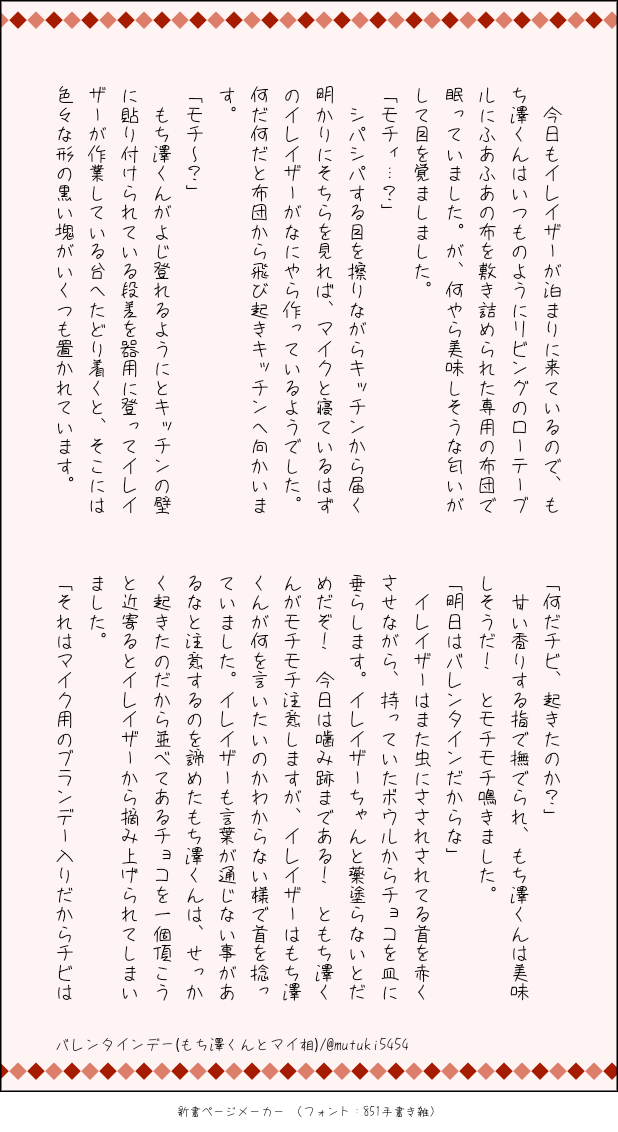 今日もイレイザーが泊まりに来ているので、も
ち澤くんはいつものようにリビングのローテーブ
ルにふあふあの布を敷き詰められた専用の布団で
眠っていました。が、何やら美味しそうな匂いが
して目を覚ましました。
「モチィ…？」
　シパシパする目を擦りながらキッチンから届く
明かりにそちらを見れば、マイクと寝ているはず
のイレイザーがなにやら作っているようでした。
何だ何だと布団から飛び起きキッチンへ向かいま
す。
「モチ～？」
　もち澤くんがよじ登れるようにとキッチンの壁
に貼り付けられている段差を器用に登ってイレイ
ザーが作業している台へたどり着くと、そこには
色々な形の黒い塊がいくつも置かれています。
「何だチビ、起きたのか？」
　甘い香りする指で撫でられ、もち澤くんは美味
しそうだ！　とモチモチ鳴きました。
「明日はバレンタインだからな」
　イレイザーはまた虫にさされされてる首を赤く
させながら、持っていたボウルからチョコを皿に
垂らします。イレイザーちゃんと薬塗らないとだ
めだぞ！　今日は噛み跡まである！　ともち澤く
んがモチモチ注意しますが、イレイザーはもち澤
くんが何を言いたいのかわからない様で首を捻っ
ていました。イレイザーも言葉が通じない事があ
るなと注意するのを諦めたもち澤くんは、せっか
く起きたのだから並べてあるチョコを一個頂こう
と近寄るとイレイザーから摘み上げられてしまい
ました。
「それはマイク用のブランデー入りだからチビは
バレンタインデー(もち澤くんとマイ相)/@mutuki5454
新書ページメーカー　（フォント：851手書き雑）